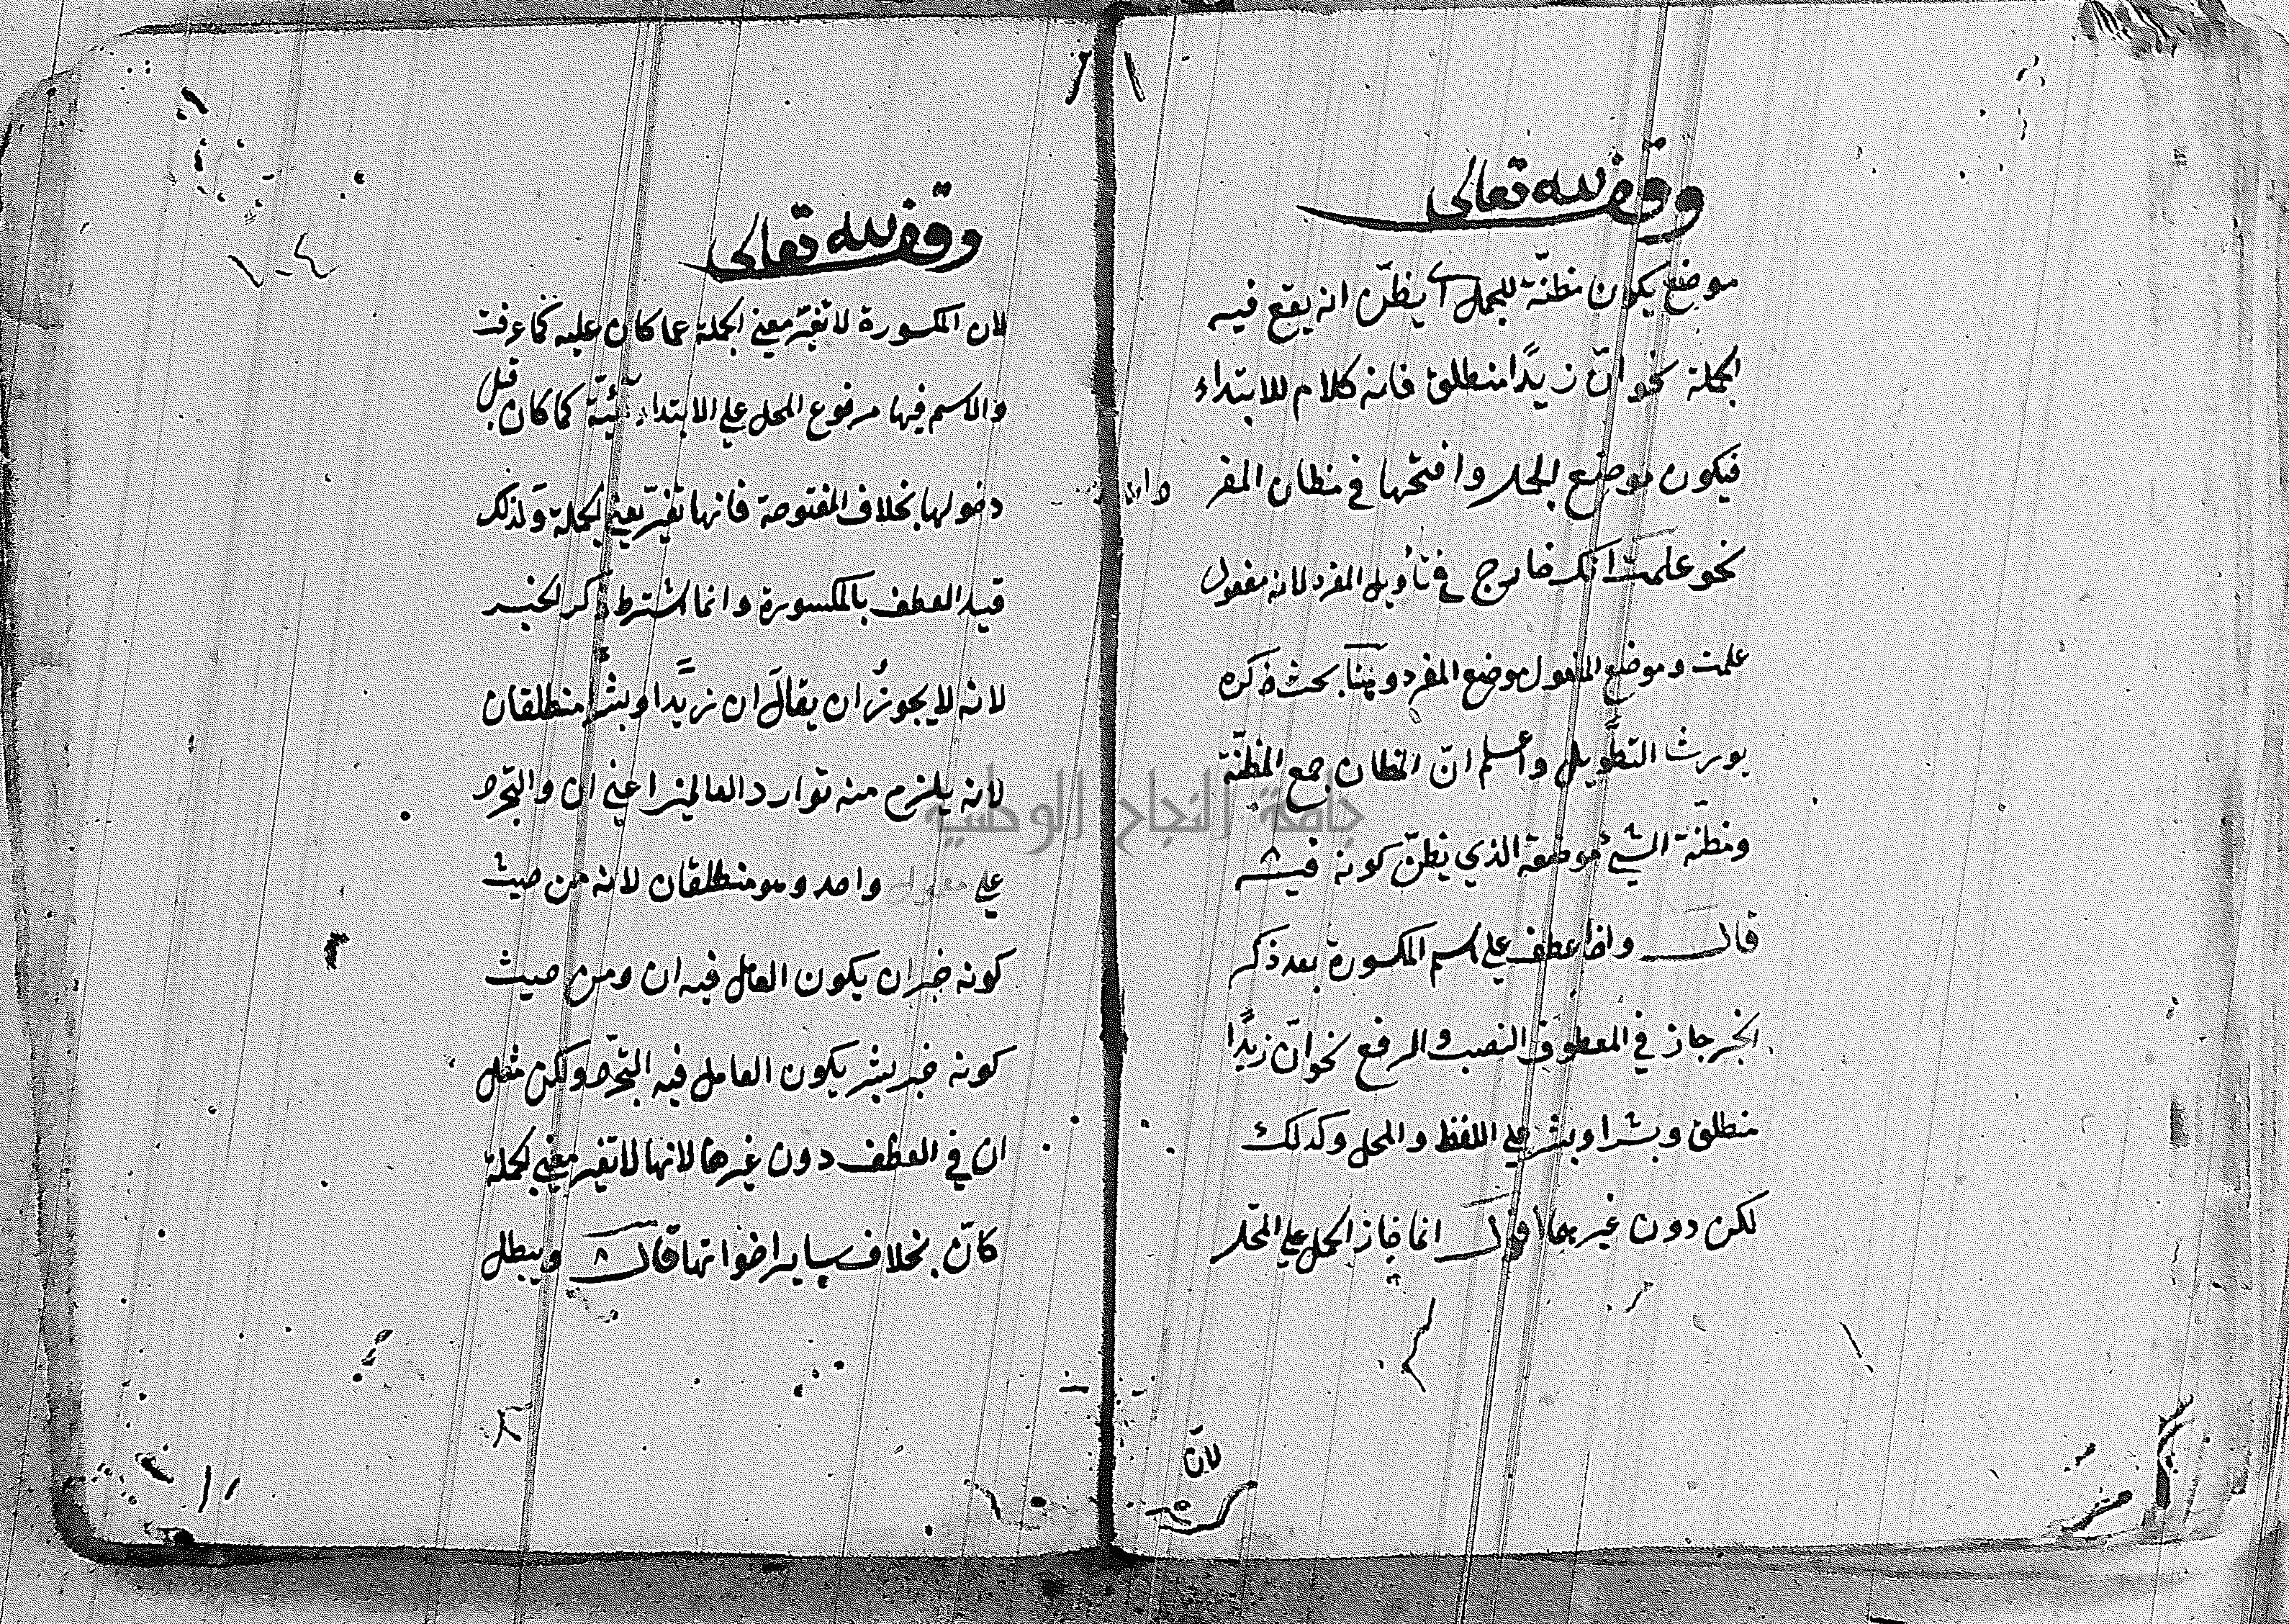 وقف لله تعالى
موضع يكون مظنّة للجمل اي يظنّ انه يقع فيه
الجملة نحو انّ زيدًا منطلق فانه كلام للابتداء
فيكون موضع الجمل وافتحها في مظان المفرد
نحو علمت انك خارج في تأويل المفرد لانه مفعول
علمت وموضع المفعول موضع المفرد وهنا بحث ذكره
يورث التطويل واعلم انّ المظان جمع المظنّة
ومظنّة الشيئ موضعه الذي يظنّ كونه فيه
قال واذا عطف على اسم المكسورة بعد ذكر
الخبر جاز في المعطوف النصب والرفع نحو انّ زيدًا
منطلق وبشرا وبشر على اللفظ والمحل وكذلك
لكن دون غيرهما اقول انما جاز الحمل على المحل
لانّ
وقف لله تعالى
لان المكسورة لا تغيّر معنى الجملة عما كان عليه كما عرفت
والاسم فيها مرفوع المحل على الابتدائيّة كما كان قبل
دخولها بخلاف المفتوحة فانها تغيّر معنى الجملة ولذلك
قيد العطف بالمكسورة وانما اشترط ذكر الخبر
لانه لا يجوز ان يقال ان زيدا وبشرا منطلقان
لانه يلزم منه توارد العاملين اعني ان والتجرد
على معمول واحد وهو منطلقان لانه من حيث
كونه خبر ان يكون العامل فيه ان ومن حيث
كونه خبر بشر يكون العامل فيه التجرّد ولكن مثل
ان في العطف دون غيرها لانها لا تغير معنى الجملة
كانّ بخلاف ساير اخواتها قال ويبطل
جامعة النجاح الوطنية